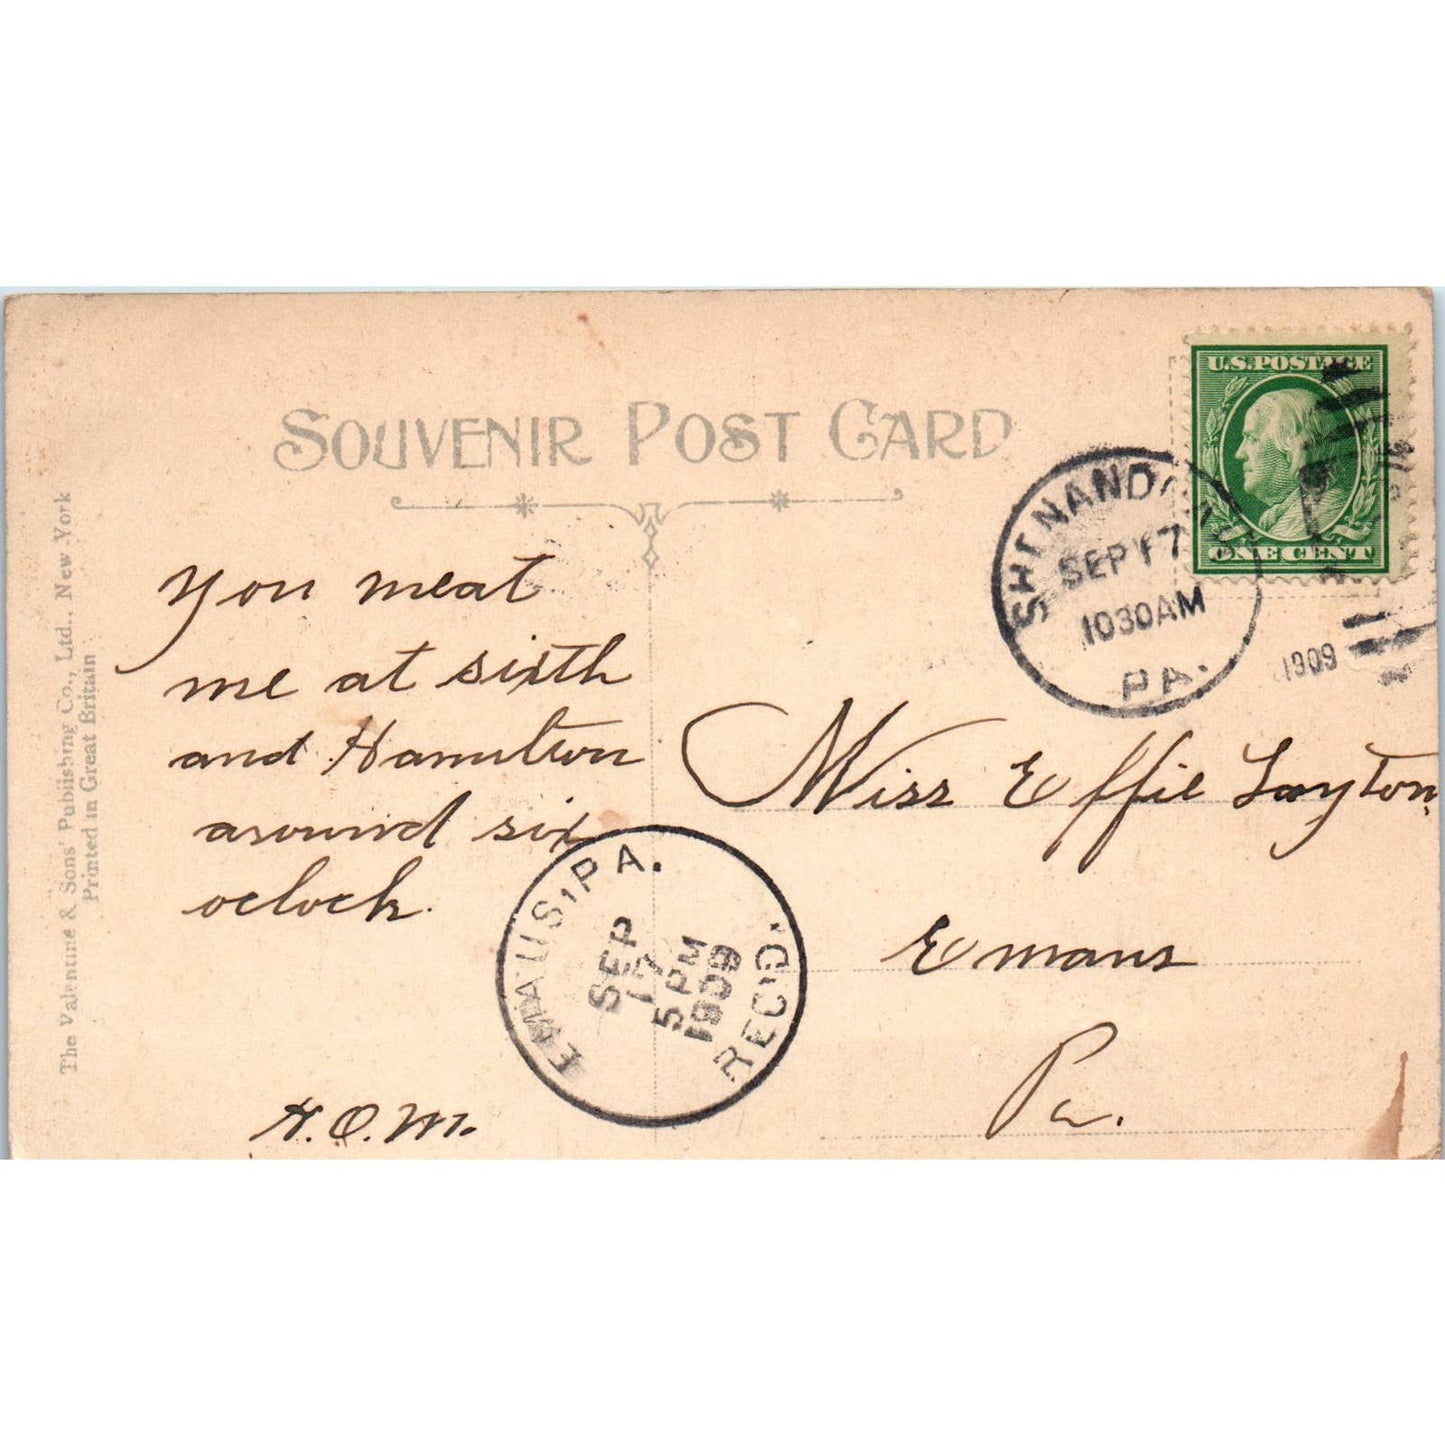 SOUVENIR POST CARD
The Valentine & Sons' Publishing Co., Ltd., New York
Printed in Great Britain
You meat
me at sixth
and Hamilton
around six
oclock.
H.O.M.
U.S. POSTAGE
ONE CENT
SHENANDOAH
SEP 17
1030AM
PA.
1909
Miss Effie Layton,
Emans
Pa.
EMAUS, PA.
SEP
17
5 PM
1909
REC'D.